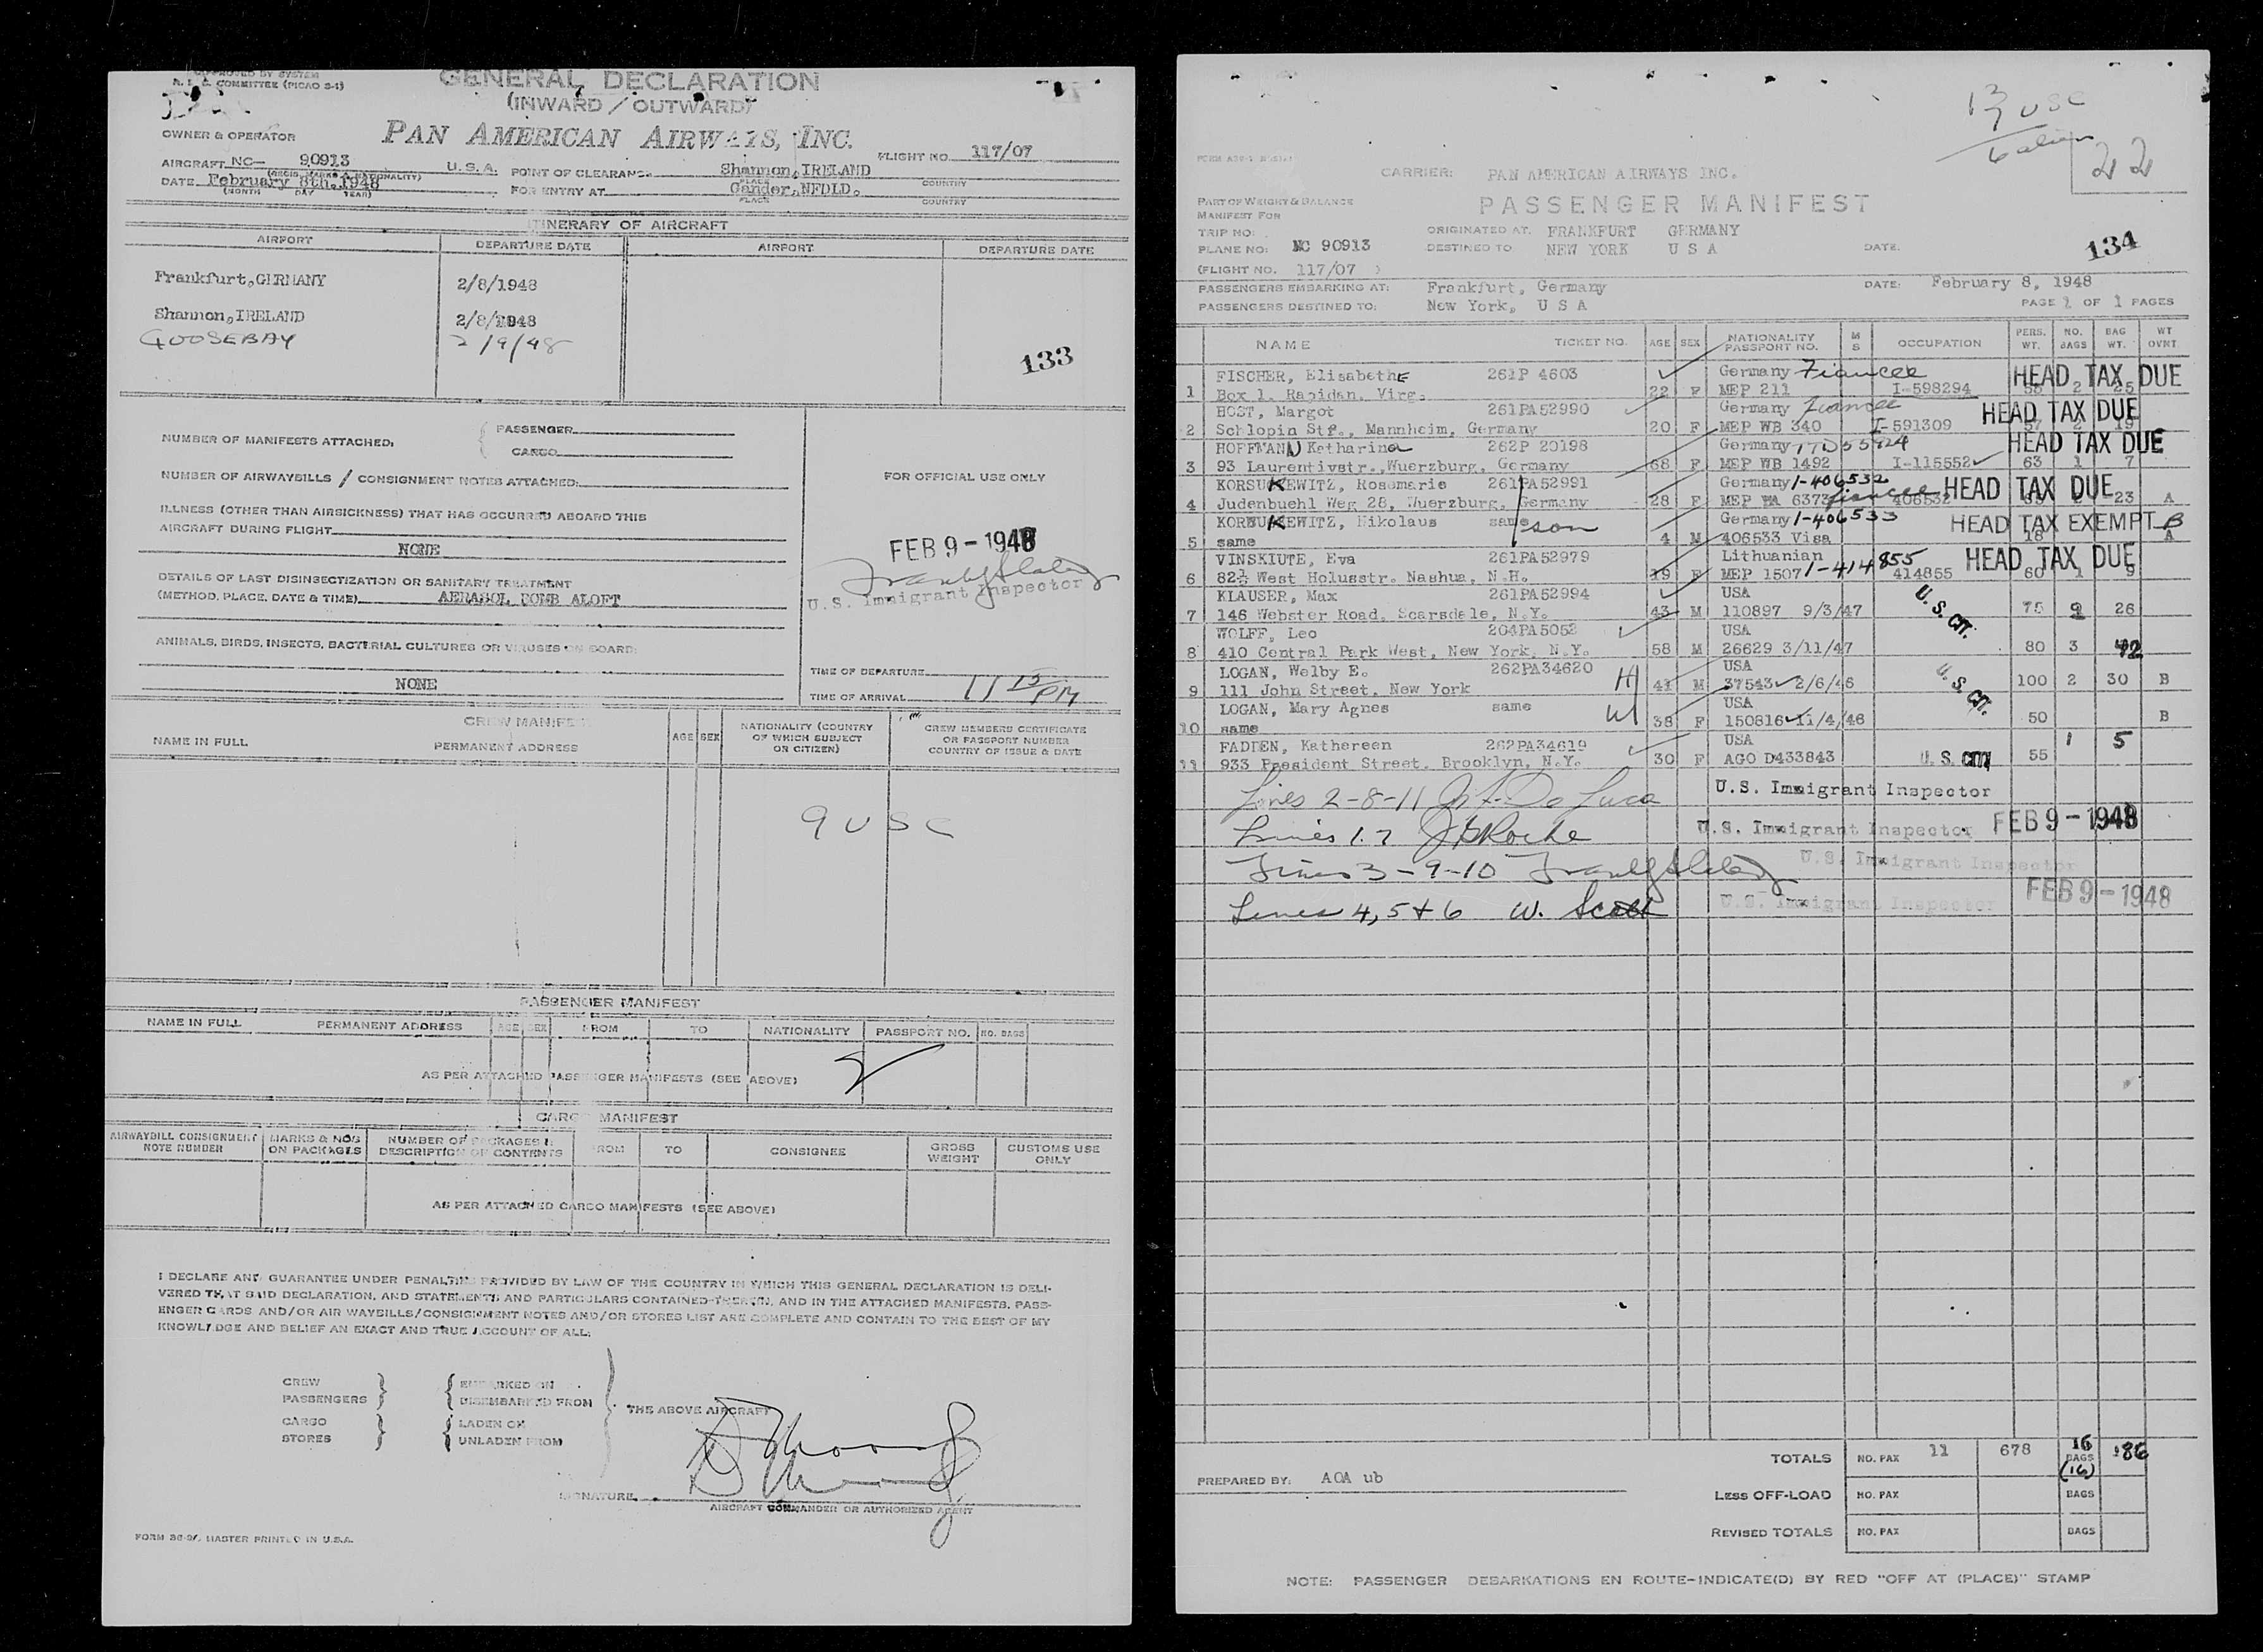 APPROVED BY SYSTEM
COMMITTEE (PICAO S-1)
GENERAL DECLARATION
(INWARD / OUTWARD)
OWNER & OPERATOR PAN AMERICAN AIRWAYS, INC.
AIRCRAFT NC- 90913 U.S.A. POINT OF CLEARANCE Shannon, IRELAND FLIGHT NO. 117/07
(REGIS. MARKS & NATIONALITY) PLACE COUNTRY
DATE February 8th, 1948 FOR ENTRY AT Gander, NFDLD.
(MONTH DAY YEAR) PLACE COUNTRY
ITINERARY OF AIRCRAFT
AIRPORT DEPARTURE DATE AIRPORT DEPARTURE DATE
Frankfurt, GERMANY 2/8/1948
Shannon, IRELAND 2/8/1948
GOOSEBAY 2/9/48
133
NUMBER OF MANIFESTS ATTACHED: PASSENGER
CARGO
NUMBER OF AIRWAYBILLS / CONSIGNMENT NOTES ATTACHED:
FOR OFFICIAL USE ONLY
ILLNESS (OTHER THAN AIRSICKNESS) THAT HAS OCCURRED ABOARD THIS
AIRCRAFT DURING FLIGHT
NONE
FEB 9 - 1948
U.S. Immigrant Inspector
DETAILS OF LAST DISINSECTIZATION OR SANITARY TREATMENT
(METHOD, PLACE, DATE & TIME) AERASOL BOMB ALOFT
ANIMALS, BIRDS, INSECTS, BACTERIAL CULTURES OR VIRUSES ON BOARD:
NONE
TIME OF DEPARTURE
TIME OF ARRIVAL 11 15 PM
CREW MANIFEST
NAME IN FULL PERMANENT ADDRESS AGE SEX NATIONALITY (COUNTRY OF WHICH SUBJECT OR CITIZEN) CREW MEMBERS CERTIFICATE OR PASSPORT NUMBER COUNTRY OF ISSUE & DATE
9 USC
PASSENGER MANIFEST
NAME IN FULL PERMANENT ADDRESS AGE SEX FROM TO NATIONALITY PASSPORT NO. NO. BAGS
AS PER ATTACHED PASSENGER MANIFESTS (SEE ABOVE)
CARGO MANIFEST
AIRWAYBILL CONSIGNMENT NOTE NUMBER MARKS & NOS ON PACKAGES NUMBER OF PACKAGES & DESCRIPTION OF CONTENTS FROM TO CONSIGNEE GROSS WEIGHT CUSTOMS USE ONLY
AS PER ATTACHED CARGO MANIFESTS (SEE ABOVE)
I DECLARE AND GUARANTEE UNDER PENALTIES PROVIDED BY LAW OF THE COUNTRY IN WHICH THIS GENERAL DECLARATION IS DELI-
VERED THAT SAID DECLARATION, AND STATEMENTS AND PARTICULARS CONTAINED THEREIN, AND IN THE ATTACHED MANIFESTS, PASS-
ENGER CARDS AND/OR AIR WAYBILLS/CONSIGNMENT NOTES AND/OR STORES LIST ARE COMPLETE AND CONTAIN TO THE BEST OF MY
KNOWLEDGE AND BELIEF AN EXACT AND TRUE ACCOUNT OF ALL:
CREW EMBARKED ON
PASSENGERS DISEMBARKED FROM
THE ABOVE AIRCRAFT
CARGO LADEN ON
STORES UNLADEN FROM
SIGNATURE
AIRCRAFT COMMANDER OR AUTHORIZED AGENT
MASTER PRINTED IN U.S.A.
13 USC
22
CARRIER: PAN AMERICAN AIRWAYS INC.
PART OF WEIGHT & BALANCE
MANIFEST FOR
PASSENGER MANIFEST
TRIP NO: ORIGINATED AT: FRANKFURT GERMANY
PLANE NO: NC 90913 DESTINED TO NEW YORK U S A DATE: 134
(FLIGHT NO. 117/07 )
PASSENGERS EMBARKING AT: Frankfurt, Germany DATE: February 8, 1948
PASSENGERS DESTINED TO: New York, U S A PAGE 1 OF 1 PAGES
NAME TICKET NO. AGE SEX NATIONALITY PASSPORT NO. M S OCCUPATION PERS. WT. NO. BAGS BAG WT. WT OVNT
FISCHER, Elisabethe 261P 4603 Germany Fiancee HEAD TAX DUE
1 Box 1, Rapidan, Virg. 22 F MEP 211 I-598294 55 2 25
HOST, Margot 261PA52990 Germany Fiancee HEAD TAX DUE
2 Schlopin Str., Mannheim, Germany 20 F MEP WB 340 I-591309 57 2 19
HOFFMANN Katharina 262P 20198 Germany HEAD TAX DUE
3 93 Laurentivstr., Wuerzburg, Germany 68 F MEP WB 1492 I-115552 63 1 7
KORSUKEWITZ, Rosemarie 261PA52991 Germany I-406532 HEAD TAX DUE
4 Judenbuehl Weg 28, Wuerzburg, Germany 28 F MEP WA 6373 fiancee 406532 23 A
KORSUKEWITZ, Nikolaus same son Germany I-406533 HEAD TAX EXEMPT B
5 same 4 M 406533 Visa 18 A
VINSKIUTE, Eva 261PA52979 Lithuanian HEAD TAX DUE
6 82½ West Holusstr. Nashua, N.H. 19 F MEP 1507 I-414855 414855 60 1 9
KLAUSER, Max 261PA52994 USA
7 146 Webster Road, Scarsdale, N.Y. 43 M 110897 9/3/47 U.S. CIT. 75 2 26
WOLFF, Leo 204PA5052 USA
8 410 Central Park West, New York, N.Y. 58 M 26629 3/11/47 80 3 42
LOGAN, Welby E. 262PA34620 H USA
9 111 John Street, New York 41 M 37543 2/6/46 U.S. CIT. 100 2 30 B
LOGAN, Mary Agnes same W USA
10 same 38 F 150816 11/4/46 50 B
FADDEN, Kathereen 262PA34619 USA 1 5
11 933 President Street, Brooklyn, N.Y. 30 F AGO D433843 U.S. CIT 55
Lines 2-8-11 De Luca U.S. Immigrant Inspector
Lines 1.7 Roche U.S. Immigrant Inspector FEB 9 - 1948
Lines 3-9-10 U.S. Immigrant Inspector
Lines 4, 5 + 6 W. Scott U.S. Immigrant Inspector FEB 9 - 1948
TOTALS NO. PAX 11 678 16 BAGS (16) 186
PREPARED BY: AOA ub
LESS OFF-LOAD NO. PAX BAGS
REVISED TOTALS NO. PAX BAGS
NOTE: PASSENGER DEBARKATIONS EN ROUTE-INDICATE(D) BY RED "OFF AT (PLACE)" STAMP